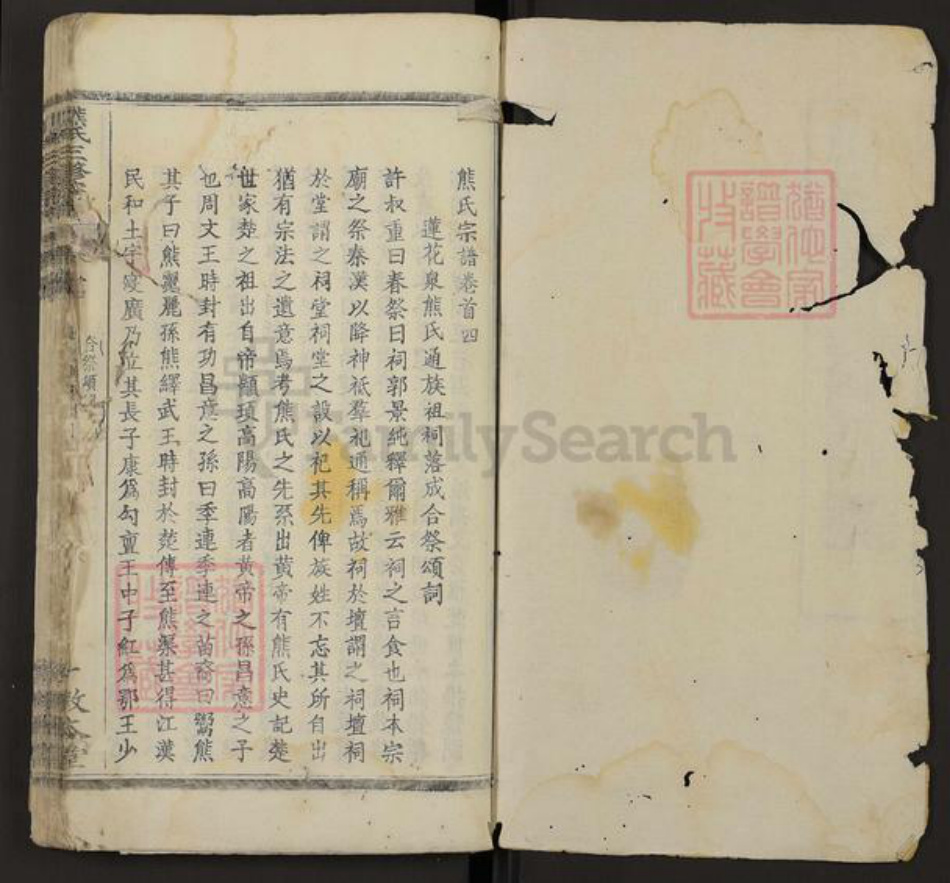 熊氏宗譜卷首四
蓮花泉熊氏通族祖祠落成合祭頌詞
許叔重曰春祭曰祠郭景純釋爾雅云祠之言食也祠本宗
廟之祭秦漢以降神祇羣祀通稱焉故祠於壇謂之祠壇祠
於堂謂之祠堂祠堂之設以祀其先俾族姓不忘其所自出
猶有宗法之遺意焉考熊氏之先系出黃帝有熊氏史記楚
世家楚之祖出自帝顓頊高陽高陽者黃帝之孫昌意之子
也周文王時封有功昌意之孫曰季連季連之苗裔曰鬻熊
其子曰熊麗麗孫熊繹武王時封於楚傳至熊渠甚得江漢
民和土宇變廣乃位其長子康爲勾亶王中子紅爲鄂王少
熊氏三修
合祭頌
一
敦本堂
猶他家
譜學會
收藏
FamilySearch